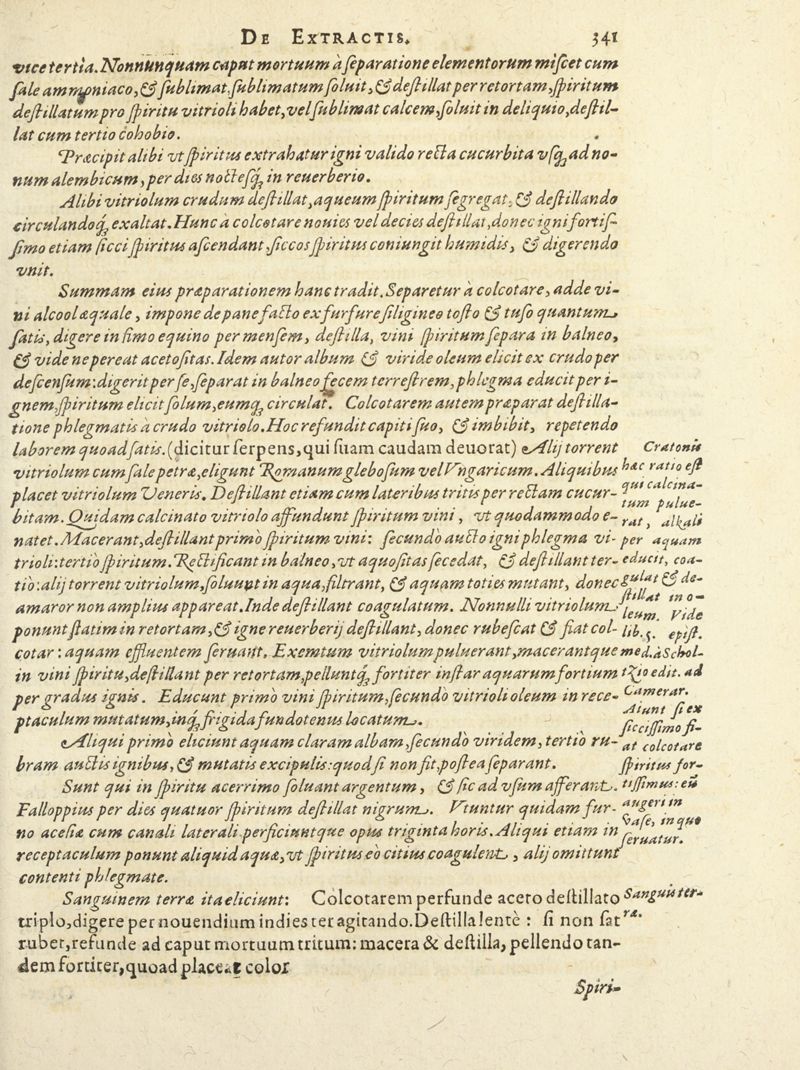 DE EXTRACTIS. 341
vice tertia. Nonnunquam caput mortuum à separatione elementorum miscet cum
sale ammoniaco, & sublimat. sublimatum soluit, & destillat per retortam, spiritum
destillatum pro spiritu vitrioli habet, vel sublimat calcem, soluit in deliquio, destil-
lat cum tertio cohobio.
Præcipit alibi vt spiritus extrahatur igni valido recta cucurbita vsq; ad no-
num alembicum, per dies noctesq; in reuerberio.
Alibi vitriolum crudum destillat, aqueum spiritum segregat, & destillando
circulandoq; exaltat. Hunc à colcotare nouies vel decies destillat, donec igni fortis-
simo etiam sicci spiritus ascendant, siccos spiritus coniungit humidis, & digerendo
vnit.
Summam eius præparationem hanc tradit. Separetur à colcotare, adde vi-
ni alcool æquale, impone de pane facto ex furfure siligineo tosto & tuso quantum
satis, digere in fimo equino per mensem, destilla, vini spiritum separa in balneo,
& vide ne pereat acetositas. Idem autor album & viride oleum elicit ex crudo per
descensum: digerit per se, separat in balneo fecem terrestrem, phlegma educit per i-
gnem, spiritum elicit solum, eumq; circulat. Colcotarem autem præparat destilla-
tione phlegmatis à crudo vitriolo. Hoc refundit capiti suo, & imbibit, repetendo
laborem quoad satis. (dicitur serpens, qui suam caudam deuorat) Alij torrent
vitriolum cum sale petræ, eligunt Romanum glebosum vel Vngaricum. Aliquibus
placet vitriolum Veneris. Destillant etiam cum lateribus tritis per rectam cucur-
bitam. Quidam calcinato vitriolo affundunt spiritum vini, vt quodammodo e-
natet. Macerant, destillant primò spiritum vini: secundò aucto igni phlegma vi-
trioli: tertiò spiritum. Rectificant in balneo, vt aquositas secedat, & destillant ter-
tiò: alij torrent vitriolum, soluunt in aqua, filtrant, & aquam toties mutant, donec
amaror non amplius appareat. Inde destillant coagulatum. Nonnulli vitriolum
ponunt statim in retortam, & igne reuerberij destillant, donec rubescat & fiat col-
cotar: aquam effluentem seruant. Exemtum vitriolum puluerant, macerantque
in vini spiritu, destillant per retortam, pelluntq; fortiter instar aquarum fortium
per gradus ignis. Educunt primò vini spiritum, secundò vitrioli oleum in rece-
ptaculum mutatum, inq; frigida fundotenus locatum.
Aliqui primò eliciunt aquam claram albam, secundò viridem, tertiò ru-
bram auctis ignibus, & mutatis excipulis: quod si non fit, postea separant.
Sunt qui in spiritu acerrimo soluant argentum, & sic ad vsum afferant.
Falloppius per dies quatuor spiritum destillat nigrum. Vtuntur quidam fur-
no acesia cum canali laterali, perficiuntque opus triginta horis. Aliqui etiam in
receptaculum ponunt aliquid aquæ, vt spiritus eò citius coagulent, alij omittunt
contenti phlegmate.
Sanguinem terræ ita eliciunt: Colcotarem perfunde aceto destillato
triplo, digere per nouendium indies ter agitando. Destilla lentè: si non sat
ruber, refunde ad caput mortuum tritum: macera & destilla, pellendo tan-
dem fortiter, quoad placeat color
Spiri-
Cratonis
hæc ratio est
qui calcina-
tum pulue-
rat, alkali
per aquam
educit, coa-
gulat & de-
stillat in o-
leum. Vide
lib. 5. epist.
med. à Schol-
tzio edit. ad
Camerar.
Aiunt si ex
siccissimo fi-
at colcotare
spiritus for-
tissimus: eū
augeri in
vase, in quo
seruatur.
Sanguis ter-
ræ.